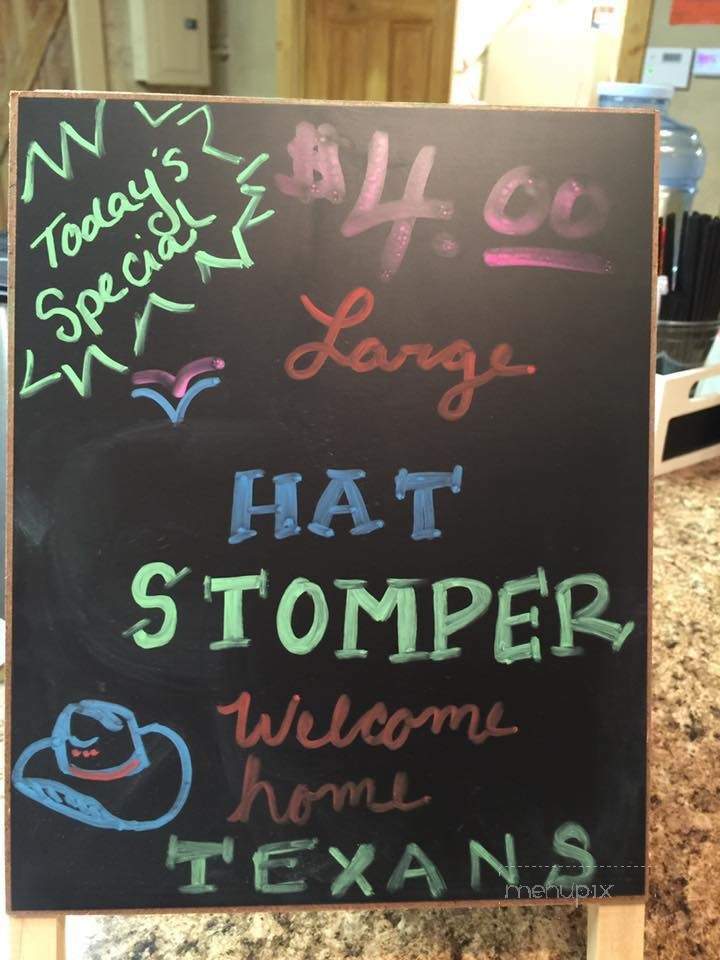 Today's
Special
$4.00
Large
HAT
STOMPER
Welcome
home
TEXANS
menupix